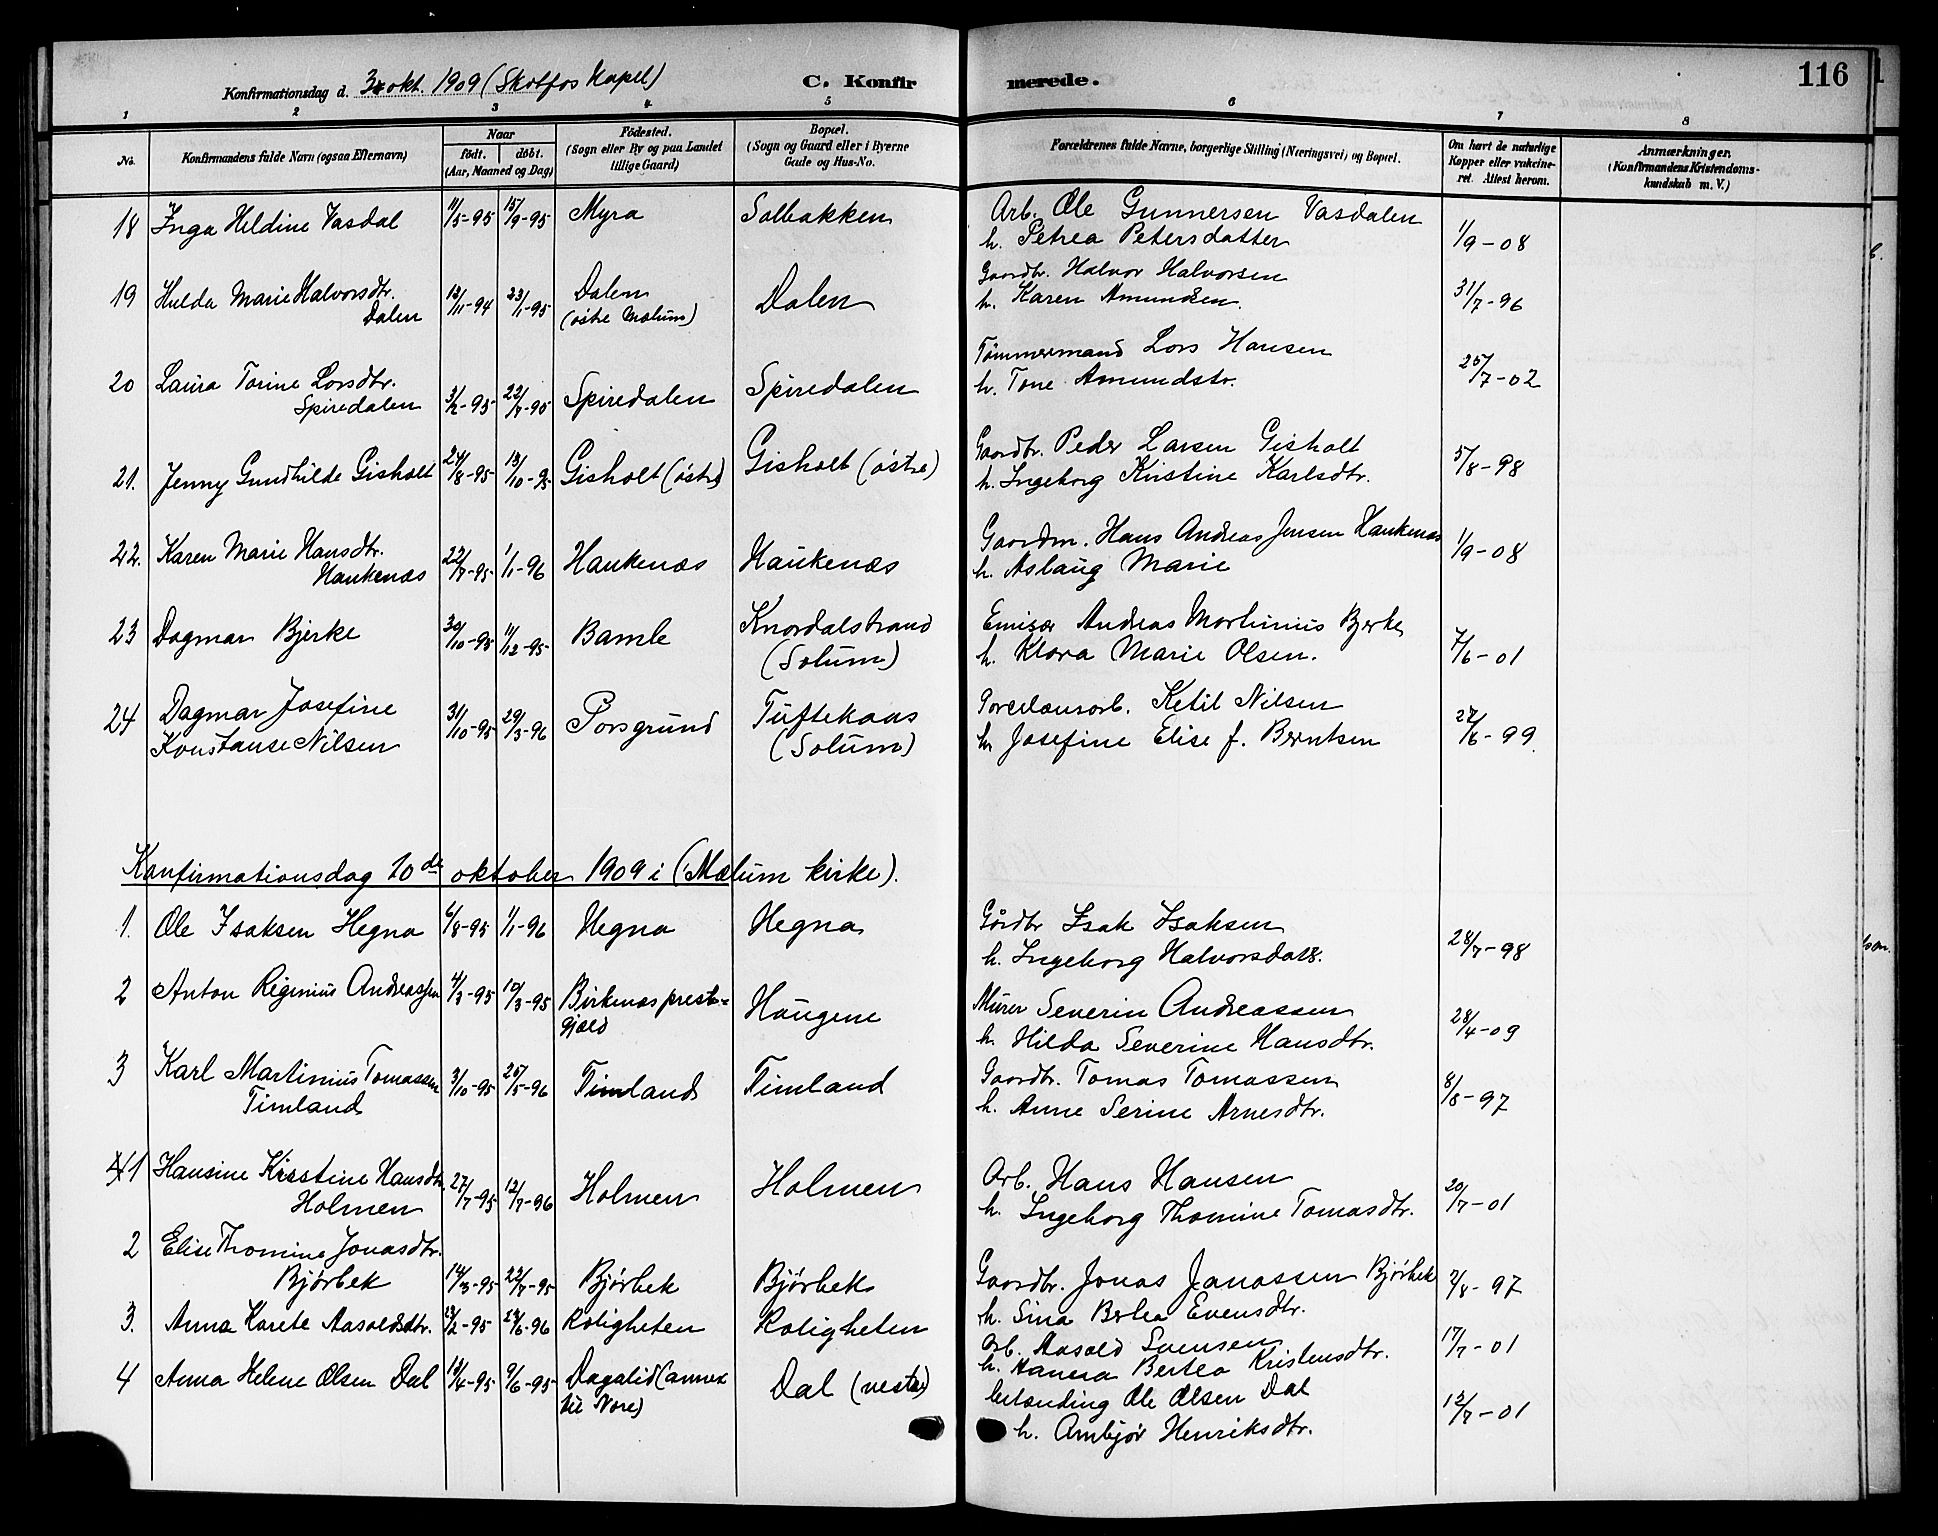 Konfirmationsdag d. 3 okt. 1909 (Skotfos Kapel)
C. Konfirmerede.
116
1 2 3 4 5 6 7 8
No.
Konfirmandens fulde Navn (ogsaa Efternavn)
Naar
født. døbt.
(Aar, Maaned og Dag)
Fødested.
(Sogn eller By og paa Landet
tillige Gaard)
Bopæl.
(Sogn og Gaard eller i Byerne
Gade og Hus-No.
Forældrenes fulde Navne, borgerlige Stilling (Næringsvei) og Bopæl.
Om havt de naturlige
Kopper eller vakcine-
ret. Attest herom.
Anmærkninger.
(Konfirmandens Kristendoms-
kundskab m. V.)
18 Inga Heldine Vasdal 11/5-95 15/9-95 Myra Solbakken Arb. Ole Gunnersen Vasdalen
h. Petrea Petersdatter 1/9-08
19 Hulda Marie Halvorsdtr. Dalen 12/11-94 23/1-95 Dalen (østre Mælum) Dalen Gaardbr. Halvor Halvorsen
h. Karen Amundsen. 31/7-96
20 Laura Torine Larsdtr. Spiredalen 3/2-95 22/7-95 Spiredalen Spiredalen Tømmermand Lars Hansen
h. Tone Amundstr. 25/7-02
21. Jenny Gundhilde Gisholt 24/8-95 13/10-95 Gisholt (østre) Gisholt (østre) Gaardbr. Peder Larsen Gisholt
h. Ingeborg Kristine Karlsdtr. 5/8-98
22. Karen Marie Hansdtr. Haukenæs 22/7-95 1/1-96 Haukenæs Haukenæs Gaardm. Hans Andreas Jensen Haukenæs
h. Aslaug Marie 1/9-08
23 Dagmar Bjerke 30/10-95 11/12-95 Bamle Knardalstrand (Solum) Emisær Andreas Martinius Bjerke
h. Klara Marie Olsen. 7/6-01
24 Dagmar Josefine Konstanse Nilsen 31/10-95 29/3-96 Porsgrund Tuftekaas (Solum) Porcelænsarb. Ketil Nilsen
h. Josefine Elise f. Berntsen 27/6-99
Konfirmationsdag 10de oktober 1909 i (Mælum kirke).
1. Ole Isaksen Hegna 6/8-95 1/1-96 Hegna Hegna Gårdbr Isak Isaksen
h. Ingeborg Halvorsdatr. 28/7-98
2 Anton Regenius Andreassen 4/3-95 10/3-95 Birkenæs prest=
gjæld Haugene Murer Severin Andreassen
h. Hilda Severine Hansdtr. 28/4-09
3 Karl Martinius Tomassen Timland 3/10-95 25/5-96 Timland Timland Gaardbr. Tomas Tomassen
h. Anne Serine Arnesdtr. 8/8-97
1 Hansine Kirstine Hansdtr. Holmen 27/7-95 12/7-96 Holmen Holmen Arb. Hans Hansen
h. Ingeborg Thomine Tomasdtr. 20/7-01
2 Elise Thomine Jonasdtr. Bjørbek 14/3-95 22/7-95 Bjørbek Bjørbek Gaardbr. Jonas Janassen Bjørbek
h. Sina Bertea Evensdtr. 2/8-97
3. Anna Karete Aasoldsdtr. 23/2-95 29/6-96 Roligheten Roligheten Arb. Aasold Svensen
h. Maren Bertea Kristensdtr. 17/7-01
4 Anna Helene Olsen Dal 13/4-95 9/6-95 Dagalid (annex
til Nore) Dal (vestre) Ole Olsen Dal
h. Ambjør Henriksdtr. 12/7-01